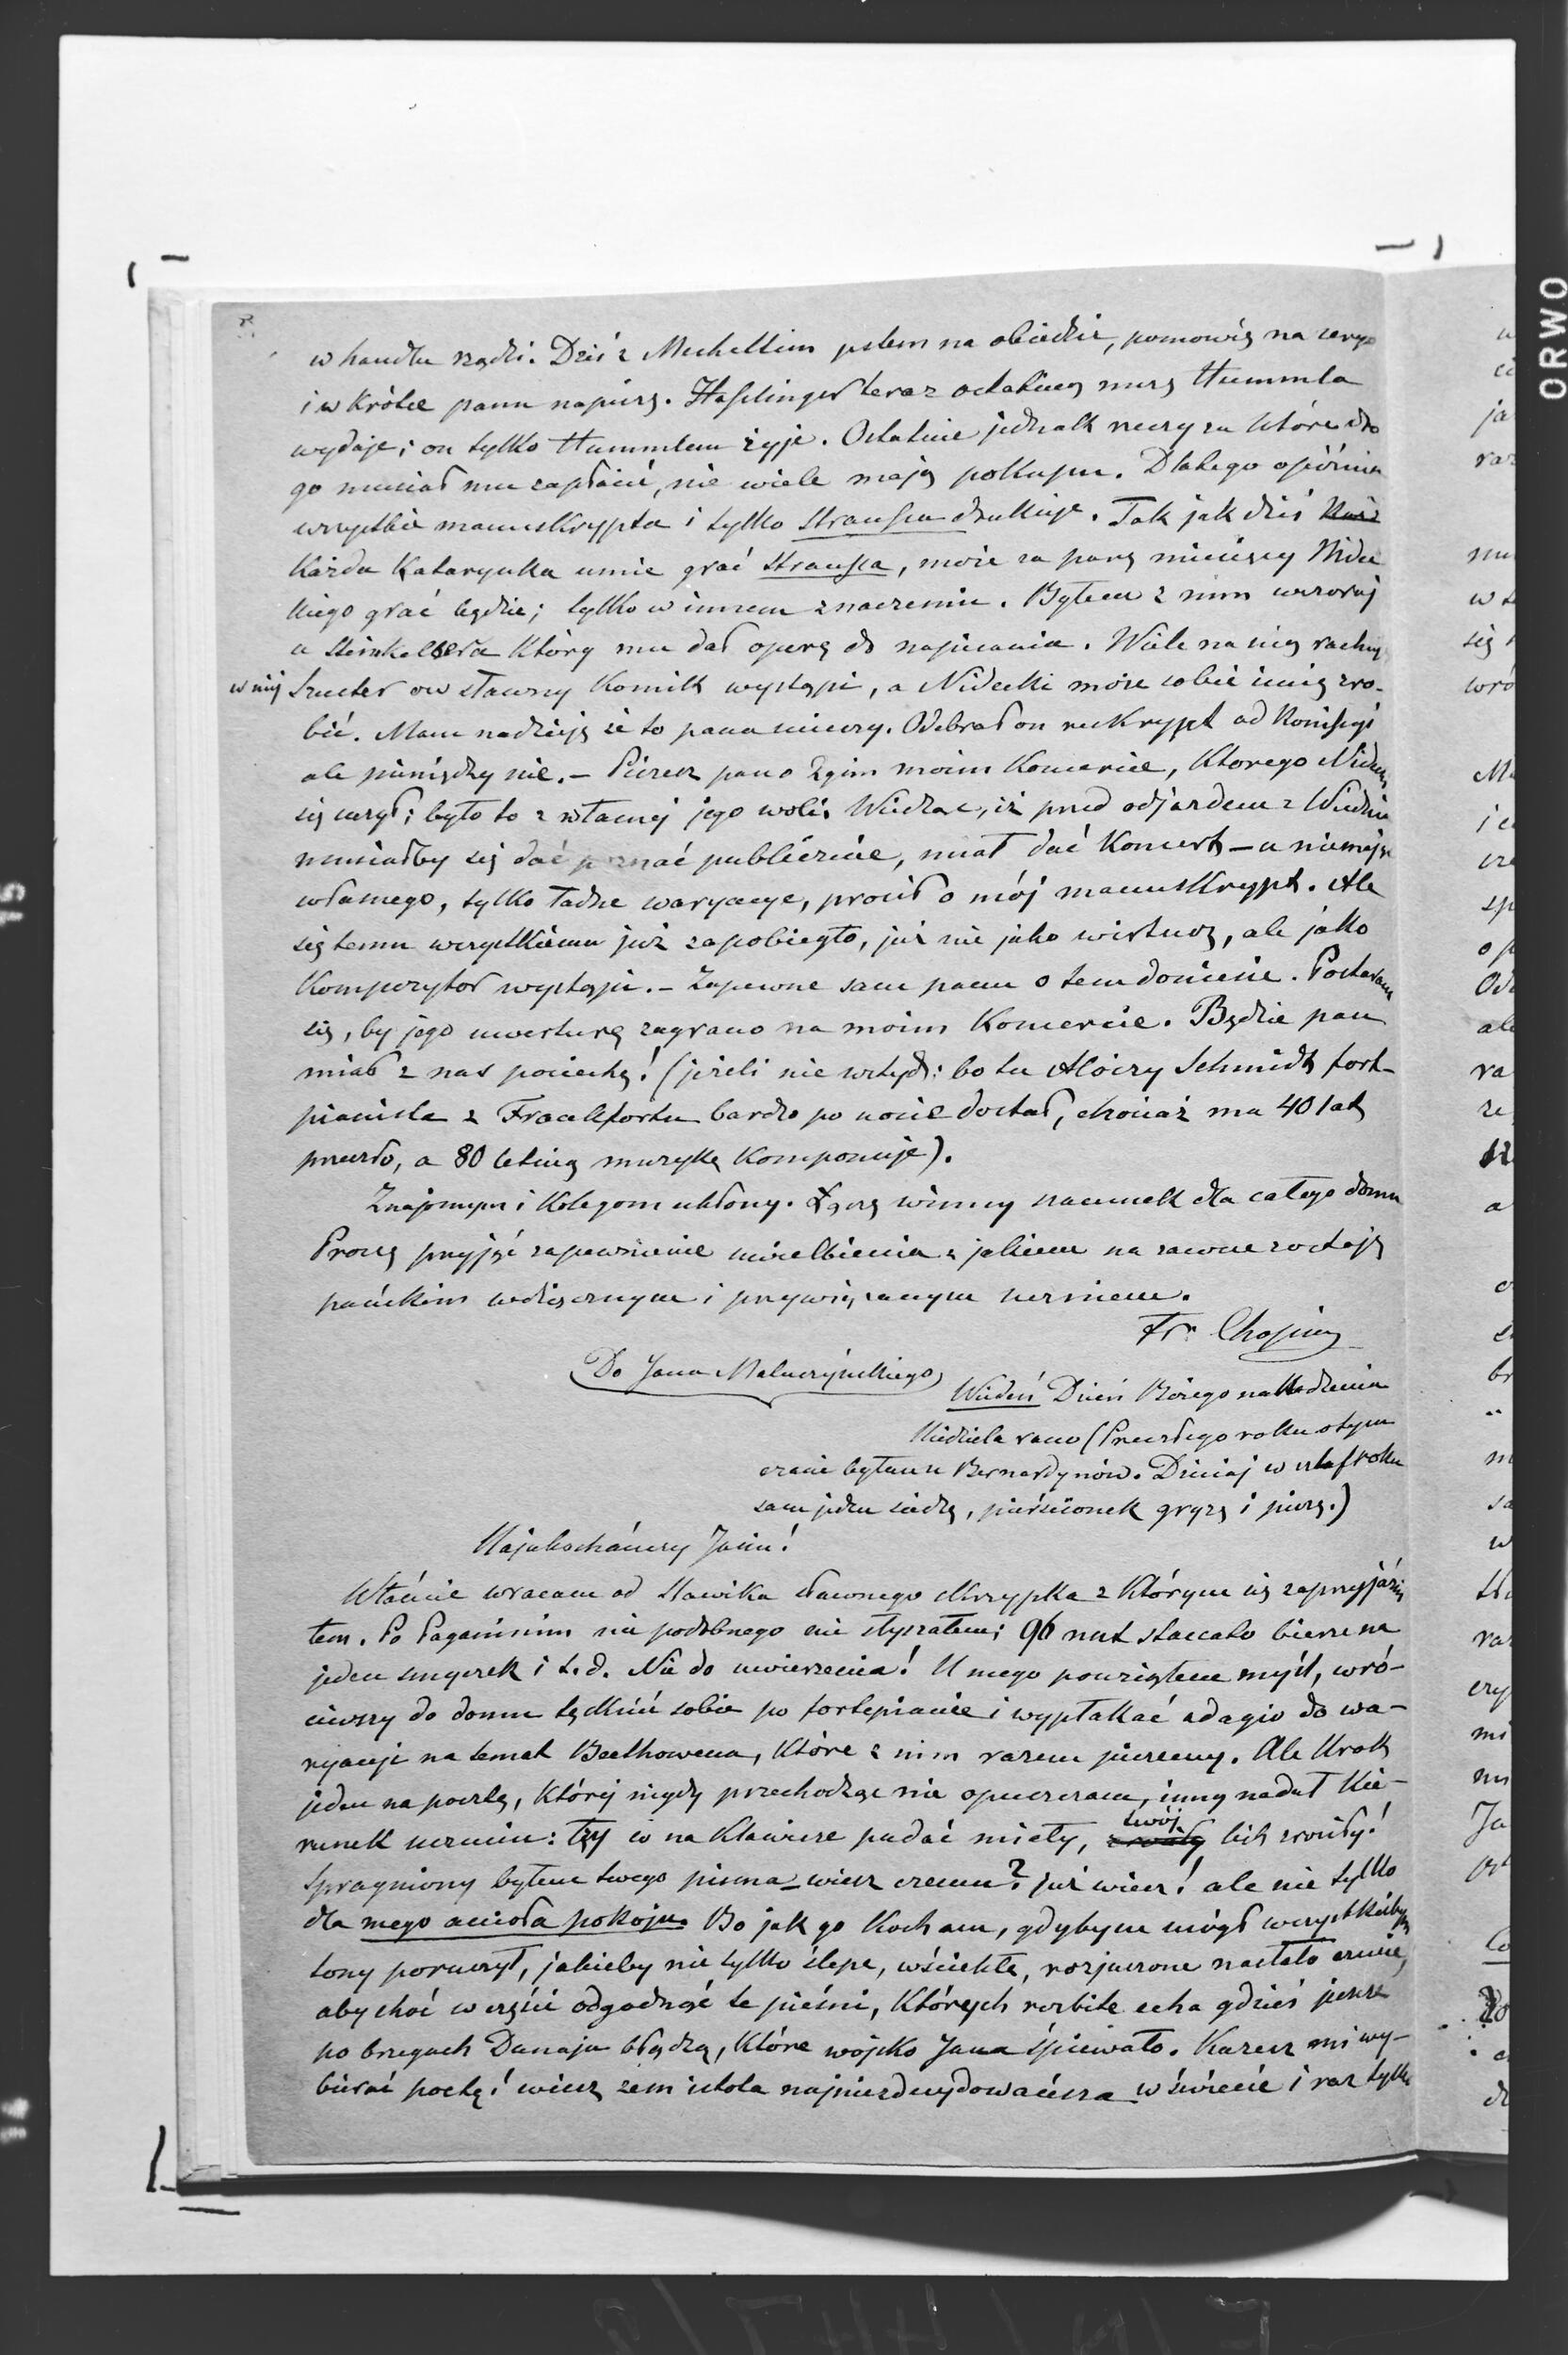 w handlu rządzi. Dziś z Mechettim jestem na obiedzie, pomówię na seryo
i w krótce panu napiszę. Haslinger teraz ostatnią mszę Hummla
wydaje; on tylko Hummlem żyje. Ostatnie jednak rzeczy za które dro
go musiał mu zapłacić, nie wiele mają pokupu. Dlatego opóźnia
wszystkie manuskrypta i tylko Straussa drukuje. Tak jak dziś
każda Katarynka umie grać Straussa, może za parę miesięcy Nidec
kiego grać będzie; tylko w innem znaczeniu. Byłem z nim wczoraj
u Steinkellera który mu dał operę do napisania. Wiele na nią rachuje
w niej Szuster ów sławny komik wystąpi, a Nidecki może sobie imię zro-
bić. Mam nadzieję że to pana ucieszy. Odebrał on reskrypt od Komisyi
ale pieniędzy nie. – Piszesz pan o 2gim moim Koncercie, ktorego Nidecki
się uczył; było to z własnej jego woli. Wiedząc, iż przed odjazdem z Wiednia
musiałby się dać poznać publicznie, miał dać koncert – a niemając
własnego, tylko ładne waryacye, prosił o mój manuskrypt. Ale
się temu wszystkiemu już zapobiegło, już nie jako wirtuoz, ale jako
Kompozytor wystąpi. – Zapewne sam panu o tem doniesie. Postaram
się, by jego uwerturę zagrano na moim Koncercie. Będzie pan
miał z nas pociechę! (jeżeli nie wstyd: bo tu Aloizy Schmidt fort-
pianista z Frankfortu bardzo po nosie dostał, chociaż ma 40 lat
przeszło, a 80 letnią muzykę komponuje).
Znajomym i Kolegom ukłony. Łączę winny szacunek dla całego domu
Proszę przyjąć zapewnienie uwielbienia z jakiem na zawsze zostaję
pańskim wdzięcznym i przywiązanym uczniem.
Fr. Chopin
Do Jana Matuszyńskiego
Wiedeń Dzień Bożego narodzenia
Niedziela rano (Przeszłego roku o tym
czasie byłem u Bernardynów. Dzisiaj w szlafroku
sam jeden siedzę, pierścionek gryzę i piszę.)
Najukochańszy Jasiu!
Właśnie wracam od Slawika sławnego skrzypka z którym się zaprzyjaźni
łem. Po Paganinim nic podobnego nie słyszałem; 96 nut staccato bierze na
jeden smyczek i t. d. Nie do uwierzenia! U niego powziąłem myśl, wró-
ciwszy do domu tęsknić sobie po fortepianie i wypłakać adagio do wa-
ryacyi na temat Beethowena, które z nim razem piszemy. Ale krok
jeden na pocztę, której nigdy przechodząc nie opuszczam, inny nadał kie-
runek uczuciu: łzy co na klawisze padać miały, twój list zrosiły!
Spragniony byłem twego pisma – wiesz czemu? już wiesz! ale nie tylko
dla mego anioła pokoju. Bo jak go kocham, gdybym mógł wszystkiebym
tony poruszył, jakieby nie tylko ślepe, wściekłe, rozjuszone nastało czucie,
aby choć w części odgadnąć te pieśni, których rozbite echa gdzieś jeszcze
po brzegach Dunaju błądzą, które wojsko Jana śpiewało. Każesz mi wy-
bierać poetę! wiesz żem istota najniezdecydowańsza w świecie i raz tylko